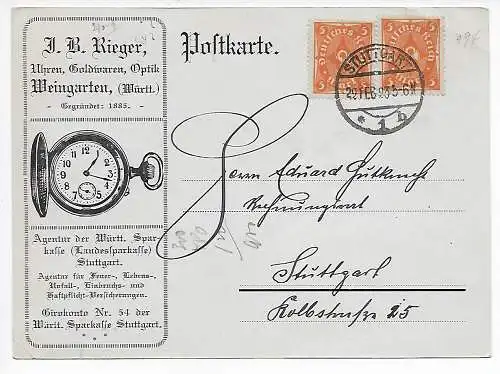 J. B. Rieger,
Uhren, Goldwaren, Optik
Weingarten, (Württ.)
- Gegründet: 1885. -
Agentur der Württ. Spar-
kasse (Landessparkasse)
Stuttgart.
Agentur für Feuer-, Lebens-,
Unfall-, Einbruchs- und
Haftpflicht-Versicherungen.
Girokonto Nr. 54 der
Württ. Sparkasse Stuttgart.
Postkarte.
5 5
Deutsches Reich
STUTTGART
5-6N
* 1 b
Herrn Eduard Gutknecht
Rechnungsrat
Stuttgart
Kolbstraße 25